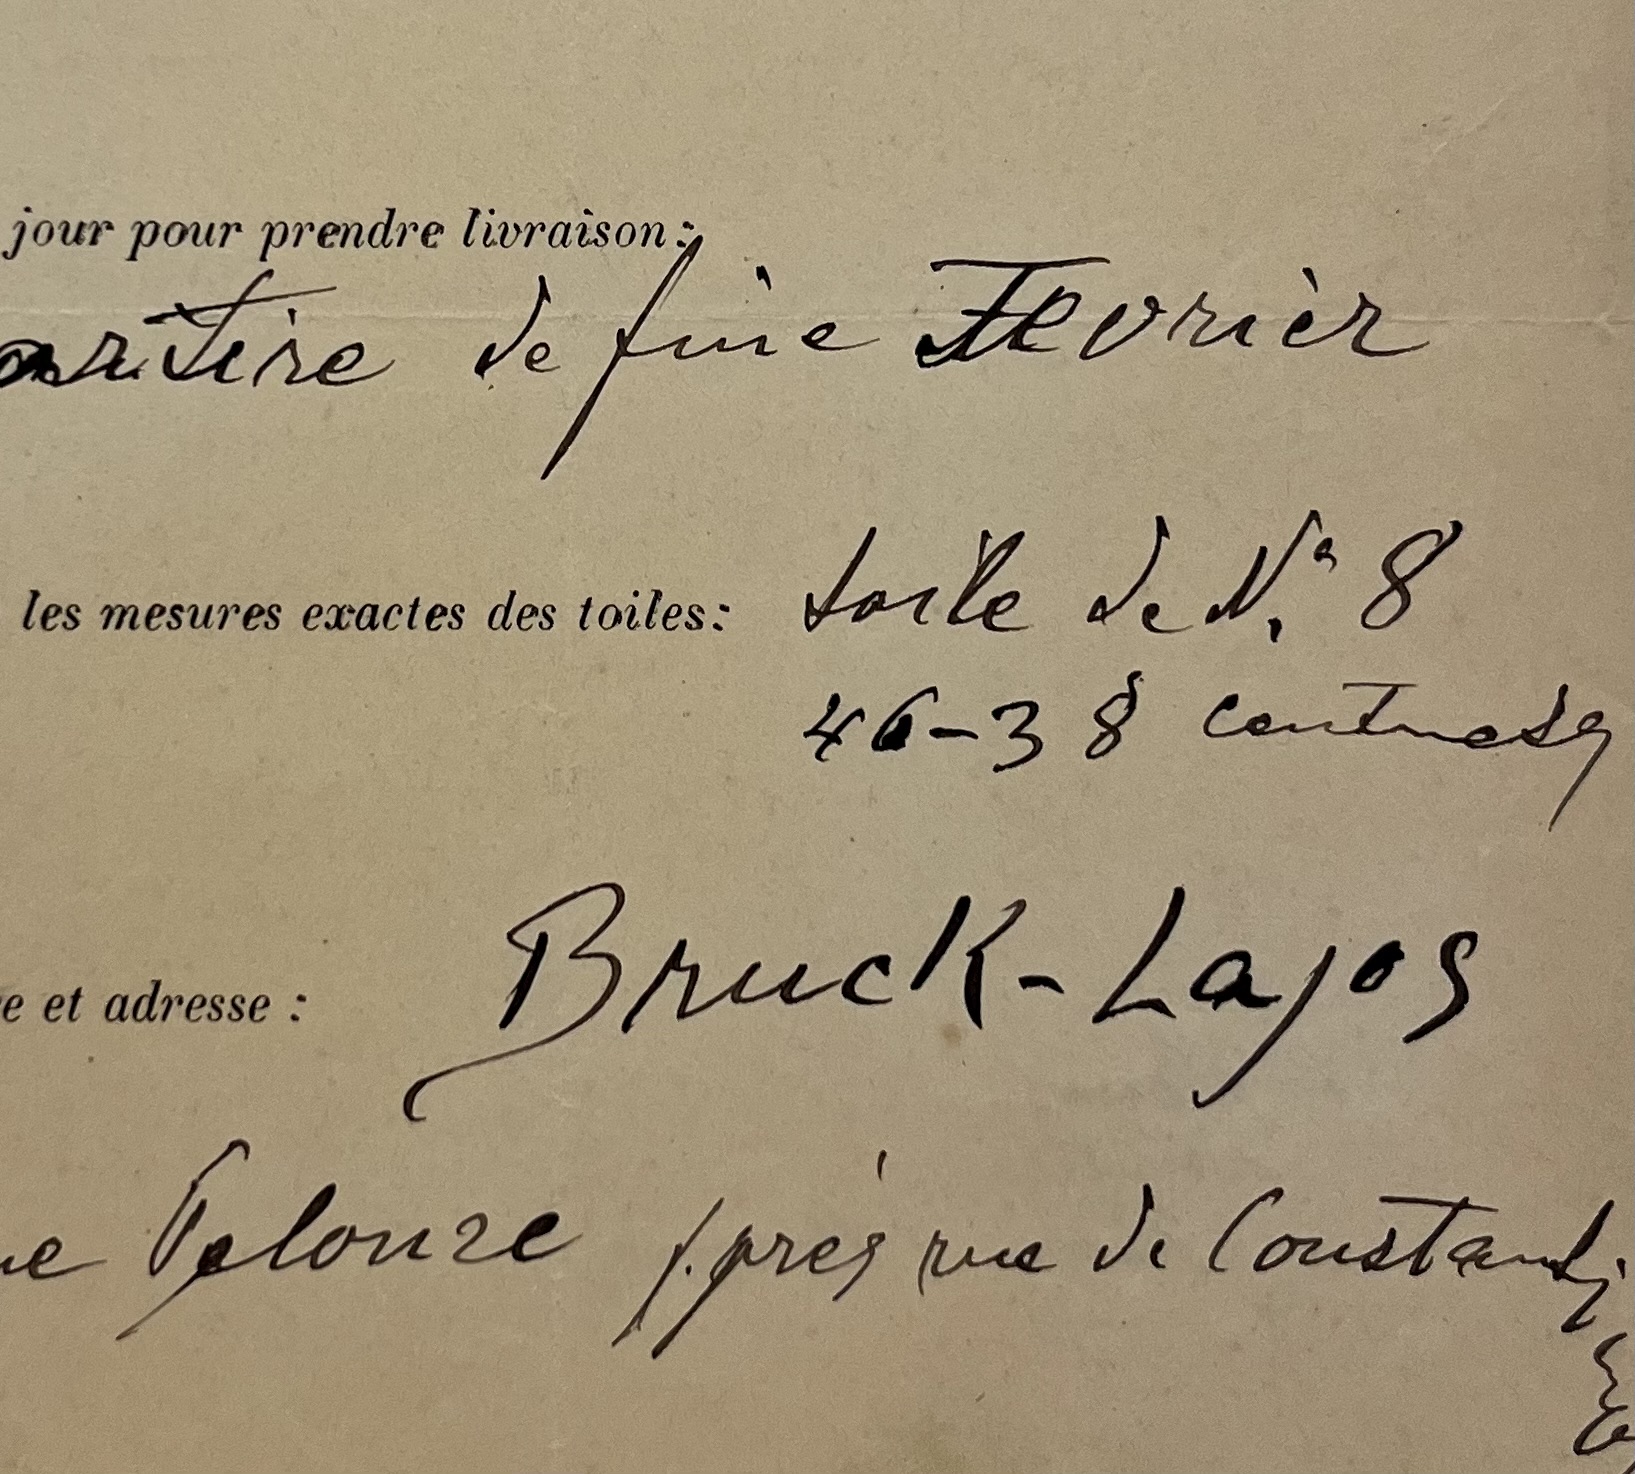 jour pour prendre livraison:
artire de fine Fevrièr
les mesures exactes des toiles: toile de No. 8
46-38 centimetr
e et adresse: Bruck-Lajos
ue Pelouze près rue de Constanti